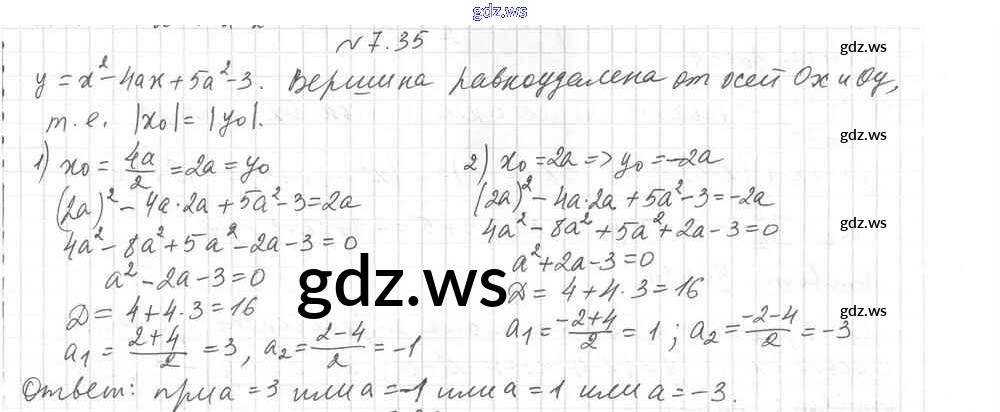 gdz.ws
№ 7.35
gdz.ws
y = x² - 4ax + 5a² - 3. Вершина равноудалена от осей Ox и Oy,
т.е. |x₀| = |y₀|.
gdz.ws
1) x₀ = 4a/2 = 2a = y₀
(2a)² - 4a·2a + 5a² - 3 = 2a
4a² - 8a² + 5a² - 2a - 3 = 0
a² - 2a - 3 = 0
D = 4 + 4·3 = 16
a₁ = (2+4)/2 = 3, a₂ = (2-4)/2 = -1
2) x₀ = 2a => y₀ = -2a
(2a)² - 4a·2a + 5a² - 3 = -2a
4a² - 8a² + 5a² + 2a - 3 = 0
a² + 2a - 3 = 0
D = 4 + 4·3 = 16
a₁ = (-2+4)/2 = 1; a₂ = (-2-4)/2 = -3
gdz.ws
gdz.ws
gdz.ws
Ответ: при a = 3 или a = -1 или a = 1 или a = -3.
gdz.ws